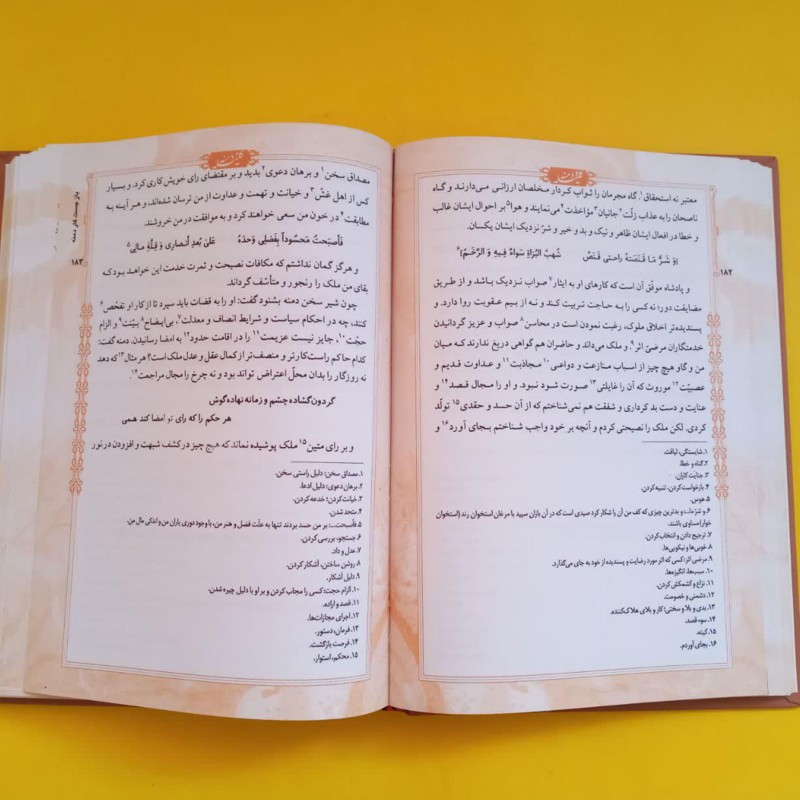 کلیله و دمنه
۱۸۲
معتبر نه استحقاق۱. گاه مجرمان را ثواب کردار مخلصان ارزانی می‌دارند و گاه
ناصحان را به عذاب زلّت۲ جانیان۳ مؤاخذت۴ می‌نمایند و هوا۵ بر احوال ایشان غالب
و خطا در افعال ایشان ظاهر و نیک و بد و خیر و شرّ نزدیک ایشان یکسان.
[وَ شَرُّ مَا قَنَصَتهُ راحتی قَنَصٌ شُهبُ البُزاةِ سَواءٌ فیهِ وَ الرَّخَمُ]۶
و پادشاه موفّق آن است که کارهای او به ایثار۷ صواب نزدیک باشد و از طریق
مضایقت دور؛ نه کسی را به حاجت تربیت کند و نه از بیم عقوبت روا دارد. و
پسندیده‌تر اخلاق ملوک، رغبت نمودن است در محاسن۸ صواب و عزیز گردانیدن
خدمتگاران مرضیّ اثر۹. و ملک می‌داند و حاضران هم گواهی دریغ ندارند که میان
من و گاو هیچ چیز از اسباب منازعت و دواعی۱۰ مجاذبت۱۱ و عداوت قدیم و
عصبیّت۱۲ موروث که آن را غایلتی۱۳ صورت شود نبود. و او را مجال قصد۱۴ و
عنایت و دست بد کرداری و شفقت هم نمی‌شناختم که از آن حسد و حقدی۱۵ تولّد
کردی. لکن ملک را نصیحتی کردم و آنچه بر خود واجب شناختم بجای آورد۱۶ و
۱. شایستگی، لیاقت.
۲. گناه و خطا.
۳. جنایت کاران.
۴. بازخواست کردن، تنبیه کردن.
۵. هوس.
۶. و شرّ ما...: و بدترین چیزی که کف من آن را شکار کرد صیدی است که در آن بازان سپید با مرغان استخوان رند (استخوان
خوار) مساوی باشند.
۷. ترجیح دادن و انتخاب کردن.
۸. خوبی‌ها و نیکویی‌ها.
۹. مرضی اثر: کسی که اثر مورد رضایت و پسندیده از خود به جای می‌گذارد.
۱۰. سبب‌ها، انگیزه‌ها.
۱۱. نزاع و کشمکش کردن.
۱۲. دشمنی و خصومت.
۱۳. بدی و بلا و سختی؛ کار و بلای هلاک کننده.
۱۴. سوء قصد.
۱۵. کینه.
۱۶. بجای آوردم.
کلیله و دمنه
باز جست کار دمنه
۱۸۳
مصداق سخن۱ و برهان دعوی۲ بدید و بر مقتضای رای خویش کاری کرد. و بسیار
کس از اهل غشّ۳ و خیانت و تهمت و عداوت از من ترسان شده‌اند، و هر آینه به
مطابقت۴ در خون من سعی خواهند کرد و به موافقت در من خروشند.
فَأصبَحتُ مَحسُوداً بِفَضلِی وَحدَهُ عَلیٰ بُعدِ أنصاری وَ قِلَّةِ مالِی۵
و هرگز گمان نداشتم که مکافات نصیحت و ثمرت خدمت این خواهد بود که
بقای من ملک را رنجور و متأسّف گرداند.
چون شیر سخن دمنه بشنود گفت: او را به قضات باید سپرد تا از کار او تفحّص۶
کنند، چه در احکام سیاست و شرایط انصاف و معدلت۷، بی‌ایضاح۸ بیّنت۹ و الزام
حجّت۱۰، جایز نیست عزیمت۱۱ را در اقامت حدود۱۲ به امضا رسانیدن. دمنه گفت:
کدام حاکم راست‌کارتر و منصف‌تر از کمال عقل و عدل ملک است؟ هر مثال۱۳ که دهد
نه روزگار را بدان محلّ اعتراض تواند بود و نه چرخ را مجال مراجعت۱۴.
گردون گشاده چشم و زمانه نهاده گوش
هر حکم را که رای تو امضا کند همی
و بر رای متین۱۵ ملک پوشیده نماند که هیچ چیز در کشف شبهت و افزودن در نور
۱. مصداق سخن: دلیل راستی سخن.
۲. برهان دعوی: دلیل ادعا.
۳. خیانت کردن؛ خدعه کردن.
۴. متحد شدن.
۵. فأصبحت...: بر من حسد بردند تنها به علّت فضل و هنر من، با وجود دوری یاران من و اندکی مال من.
۶. جستجو، بررسی کردن.
۷. عدل و داد.
۸. روشن ساختن، آشکار کردن.
۹. دلیل آشکار.
۱۰. الزام حجت: کسی را مجاب کردن و بر او با دلیل چیره شدن.
۱۱. قصد و اراده.
۱۲. اجرای مجازات‌ها.
۱۳. فرمان، دستور.
۱۴. فرصت بازگشت.
۱۵. محکم، استوار.